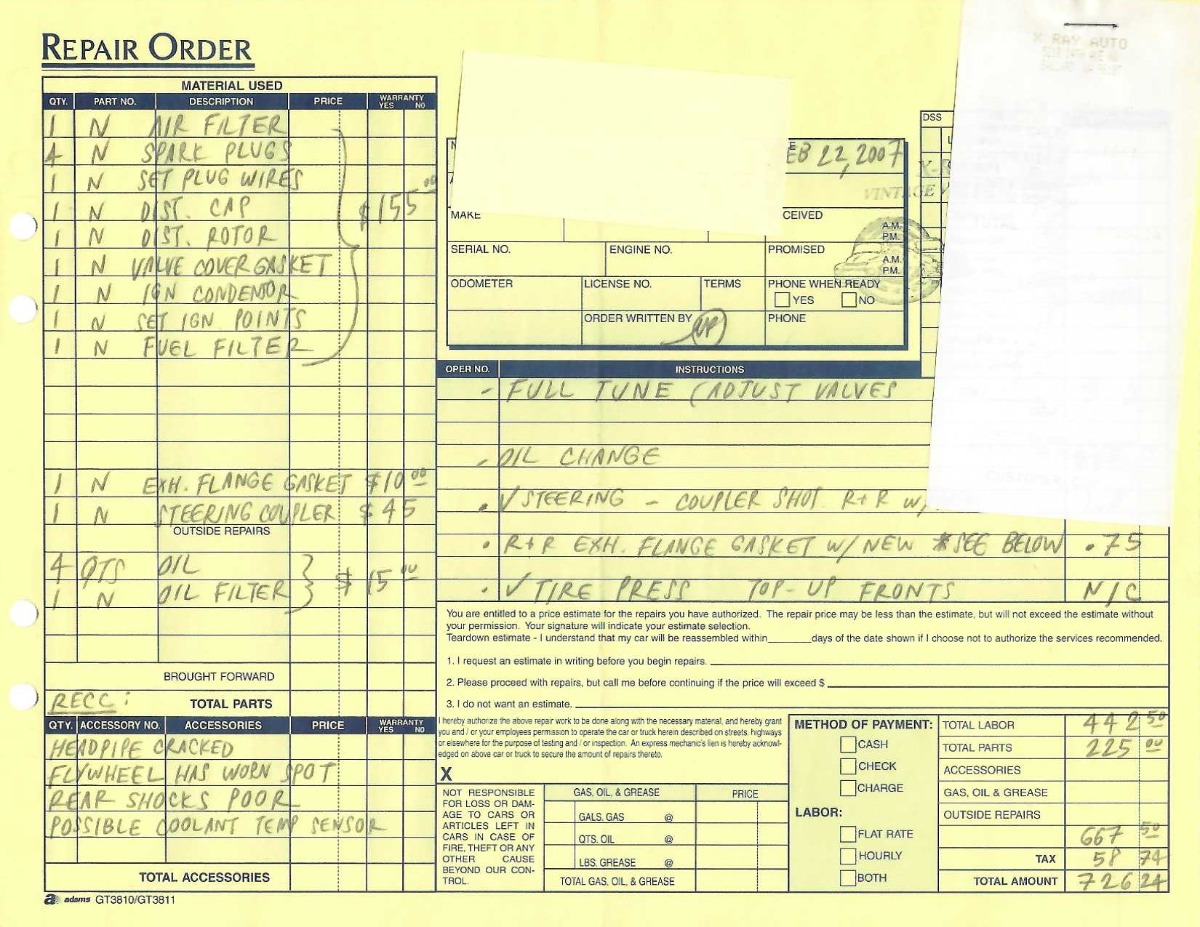 REPAIR ORDER
MATERIAL USED
QTY. PART NO. DESCRIPTION PRICE WARRANTY YES NO
1 N AIR FILTER
4 N SPARK PLUGS
1 N SET PLUG WIRES
1 N DIST. CAP $155 00
1 N DIST. ROTOR
1 N VALVE COVER GASKET
1 N IGN CONDENSOR
1 N SET IGN POINTS
1 N FUEL FILTER
1 N EXH. FLANGE GASKET $10 00
1 N STEERING COUPLER $45
OUTSIDE REPAIRS
4 QTS OIL
1 N OIL FILTER $15 00
BROUGHT FORWARD
RECC: TOTAL PARTS
QTY. ACCESSORY NO. ACCESSORIES PRICE WARRANTY YES NO
HEADPIPE CRACKED
FLYWHEEL HAS WORN SPOT
REAR SHOCKS POOR
POSSIBLE COOLANT TEMP SENSOR
TOTAL ACCESSORIES
adams GT3810/GT3811
X RAY AUTO
EB 22, 2007
DSS
VINTAGE
MAKE
CEIVED
A.M.
P.M.
SERIAL NO. ENGINE NO. PROMISED
A.M.
P.M.
ODOMETER LICENSE NO. TERMS PHONE WHEN READY
YES NO
ORDER WRITTEN BY PHONE
CUSTOMER
OPER NO. INSTRUCTIONS
- FULL TUNE (ADJUST VALVES
- OIL CHANGE
• ✓ STEERING - COUPLER SHOT R+R W/
• R+R EXH. FLANGE GASKET W/ NEW *SEE BELOW .75
• ✓ TIRE PRESS TOP-UP FRONTS N/C
You are entitled to a price estimate for the repairs you have authorized. The repair price may be less than the estimate, but will not exceed the estimate without
your permission. Your signature will indicate your estimate selection.
Teardown estimate - I understand that my car will be reassembled within______days of the date shown if I choose not to authorize the services recommended.
1. I request an estimate in writing before you begin repairs.
2. Please proceed with repairs, but call me before continuing if the price will exceed $
3. I do not want an estimate.
I hereby authorize the above repair work to be done along with the necessary material, and hereby grant
you and / or your employees permission to operate the car or truck herein described on streets, highways
or elsewhere for the purpose of testing and / or inspection. An express mechanic's lien is hereby acknowl-
edged on above car or truck to secure the amount of repairs thereto.
X
NOT RESPONSIBLE
FOR LOSS OR DAM-
AGE TO CARS OR
ARTICLES LEFT IN
CARS IN CASE OF
FIRE, THEFT OR ANY
OTHER CAUSE
BEYOND OUR CON-
TROL.
GAS, OIL, & GREASE PRICE
GALS. GAS @
QTS. OIL @
LBS. GREASE @
TOTAL GAS, OIL, & GREASE
METHOD OF PAYMENT:
CASH
CHECK
CHARGE
LABOR:
FLAT RATE
HOURLY
BOTH
TOTAL LABOR 442 50
TOTAL PARTS 225 00
ACCESSORIES
GAS, OIL & GREASE
OUTSIDE REPAIRS
667 50
TAX 58 74
TOTAL AMOUNT 726 24